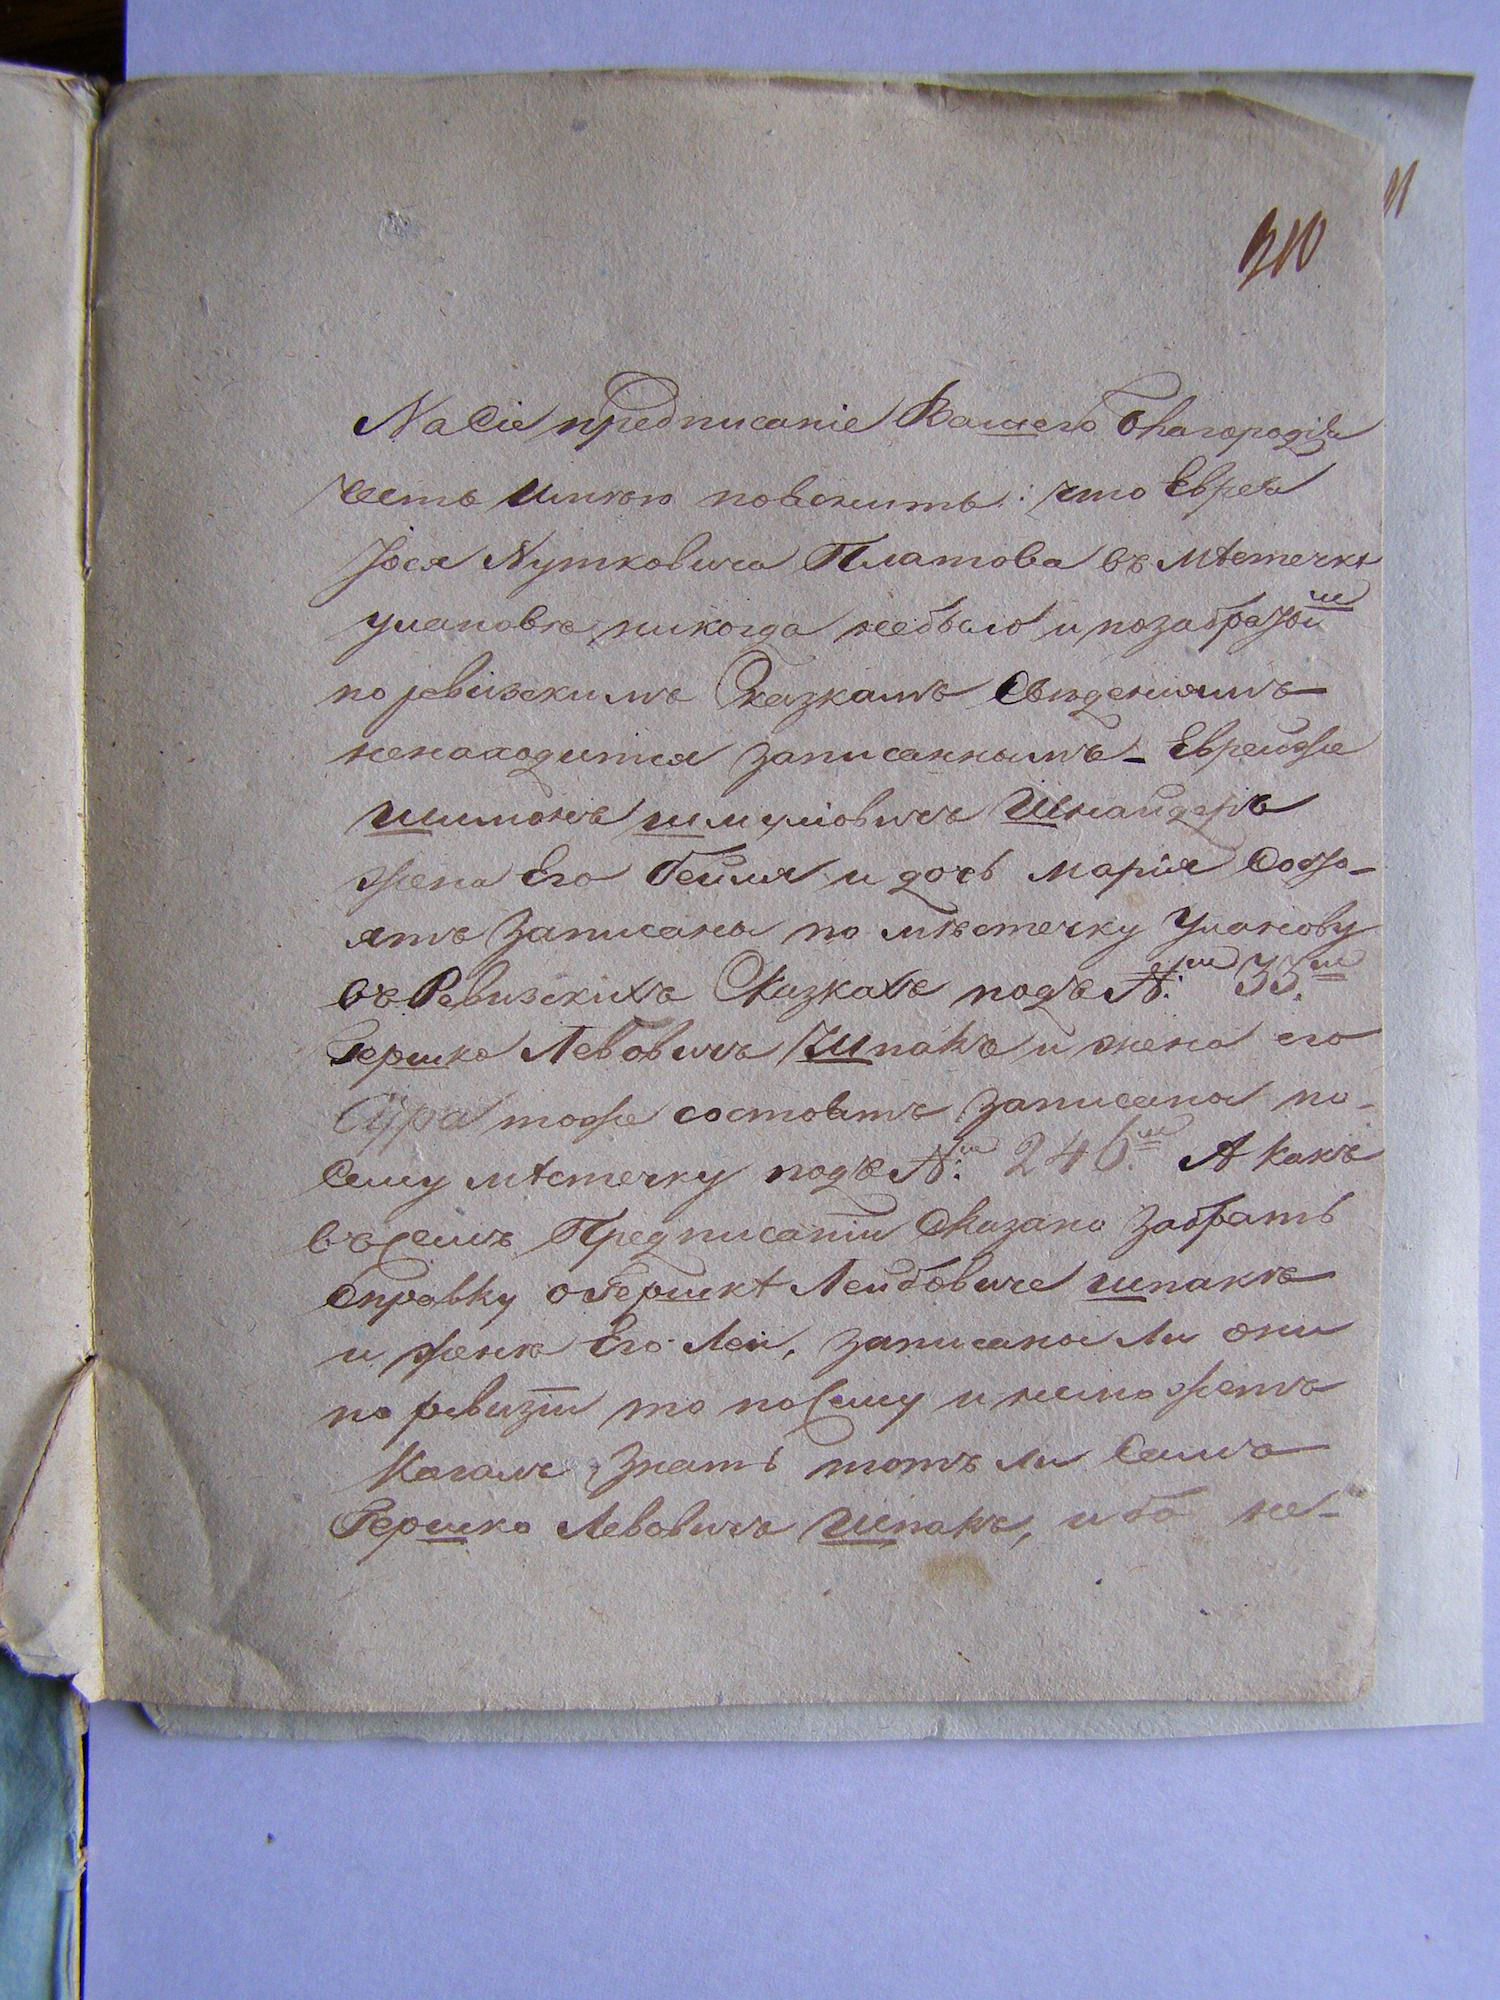 310
11
На Сіе предписаніе Вашего Благородія
честь имѣю пояснить: что Еврея
Іося Нутковича Платова въ мѣстечкѣ
улановѣ никогда небыло и по забра
по ревизскимъ Сказкамъ Свѣденіямъ
ненаходится записаннымъ - Евреиже
Шимонъ шмуліовичъ Шнайдеръ
жена Его Бейля и дочь марія Состо-
ятъ записаны по мѣстечку Уланову
въ Ревизскихъ Сказкахъ подъ №:мъ 35.мъ
Гершко Лебовичъ Шпакъ и жена его
Сура тоже состоятъ записаны по
Сему мѣстечку подъ №:мъ 246.мъ А какъ
въ семъ Предписаніи Сказано забрать
Справку о Гершкѣ Лейбовиче шпакѣ
и женѣ Его Леи, записаны ли они
по ревизіи то по Сему и неможетъ
Кагалъ знать тотъ ли Самъ
Гершко Лебовичъ Шпакъ, ибо не-